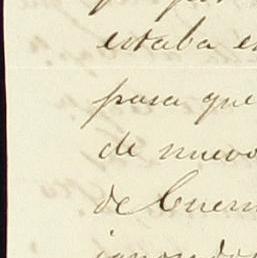 estaba e
para que
de nuevo
de Cuern